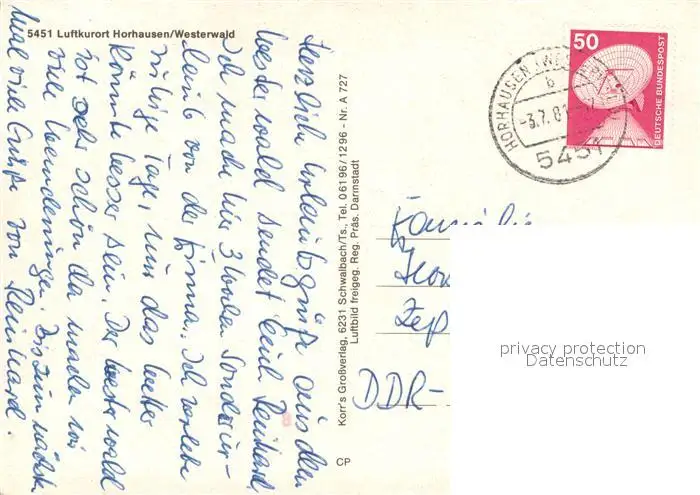 5451 Luftkurort Horhausen/Westerwald
Herzliche Urlaubsgrüße aus dem
Westerwald sendet Euch Reinhard
Ich mache hier 3 Wochen Sonderur-
laub von der Firma. Ich verlebe
ruhige Tage, nur das Wetter
könnte besser sein. Der Westerwald
ist sehr schön da machen wir
viele Wanderungen. Bis zum nächsten
Mal viele Grüße von Reinhard.
Korr's Großverlag, 6231 Schwalbach/Ts., Tel. 06196/1296 - Nr. A 727
Luftbild freigeg. Reg. Präs. Darmstadt
CP
50
DEUTSCHE BUNDESPOST
HORHAUSEN (WESTERWALD)
b
-3.7.81
5451
Familie
DDR-
privacy protection
Datenschutz